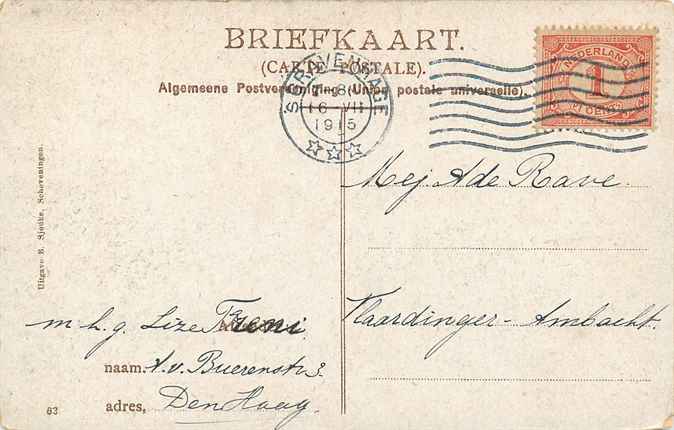 BRIEFKAART.
(CARTE POSTALE).
Algemeene Postvereeniging (Union postale universelle).
S GRAVENHAGE
7-8
16 VII
1915
NEDERLAND
1
CENT
Mej. A de Rave.
Vlaardinger-Ambacht.
Uitgave R. Sjouke, Scheveningen.
m h. g. Lize
naam: A. v. Buerenstr 3.
adres, Den Haag.
83